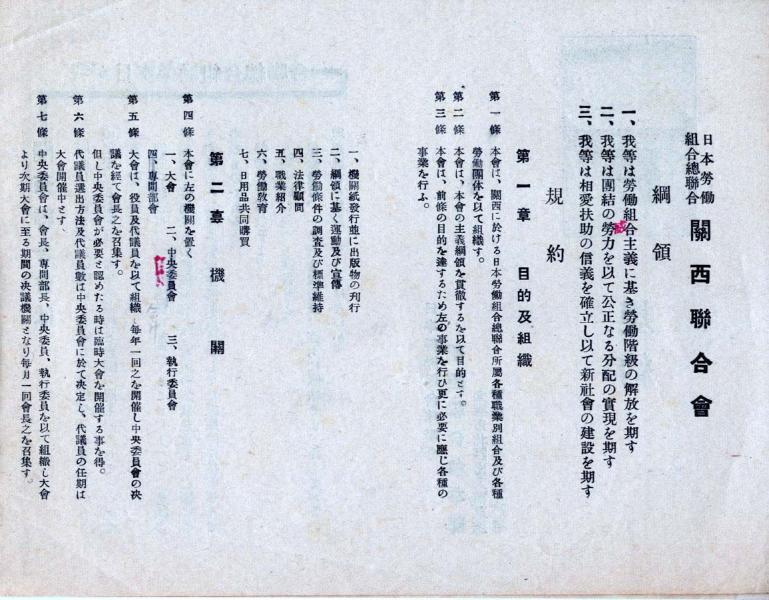 日本勞働
組合總聯合
關西聯合會
綱領
一、我等は勞働組合主義に基き勞働階級の解放を期す
二、我等は團結の勞力を以て公正なる分配の實現を期す
三、我等は相愛扶助の信義を確立し以て新社會の建設を期す
規約
第一章 目的及組織
第一條 本會は、關西に於ける日本勞働組合總聯合所屬各種職業別組合及び各種
勞働團体を以て組織す。
第二條 本會は、本會の主義綱領を貫徹するを以て目的とす。
第三條 本會は、前條の目的を達するため左の事業を行ひ更に必要に應じ各種の
事業を行ふ。
一、機關紙發行並に出版物の刊行
二、綱領に基く運動及び宣傳
三、勞働條件の調査及び標準維持
四、法律顧問
五、職業紹介
六、勞働敎育
七、日用品共同購買
第二章 機關
第四條 本會に左の機關を置く
一、大會 二、中央委員會 三、執行委員會
四、專門部會
第五條 大會は、役員及代議員を以て組織し毎年一回之を開催し中央委員會の决
議を經て會長之を召集す。
但し中央委員會が必要と認めたる時は臨時大會を開催する事を得。
第六條 代議員選出方法及代議員數は中央委員會に於て决定し、代議員の任期は
大會開催中とす、
第七條 中央委員會は、會長、專門部長、中央委員、執行委員を以て組織し大會
より次期大會に至る期間の决議機關となり毎月一回會長之を召集す。